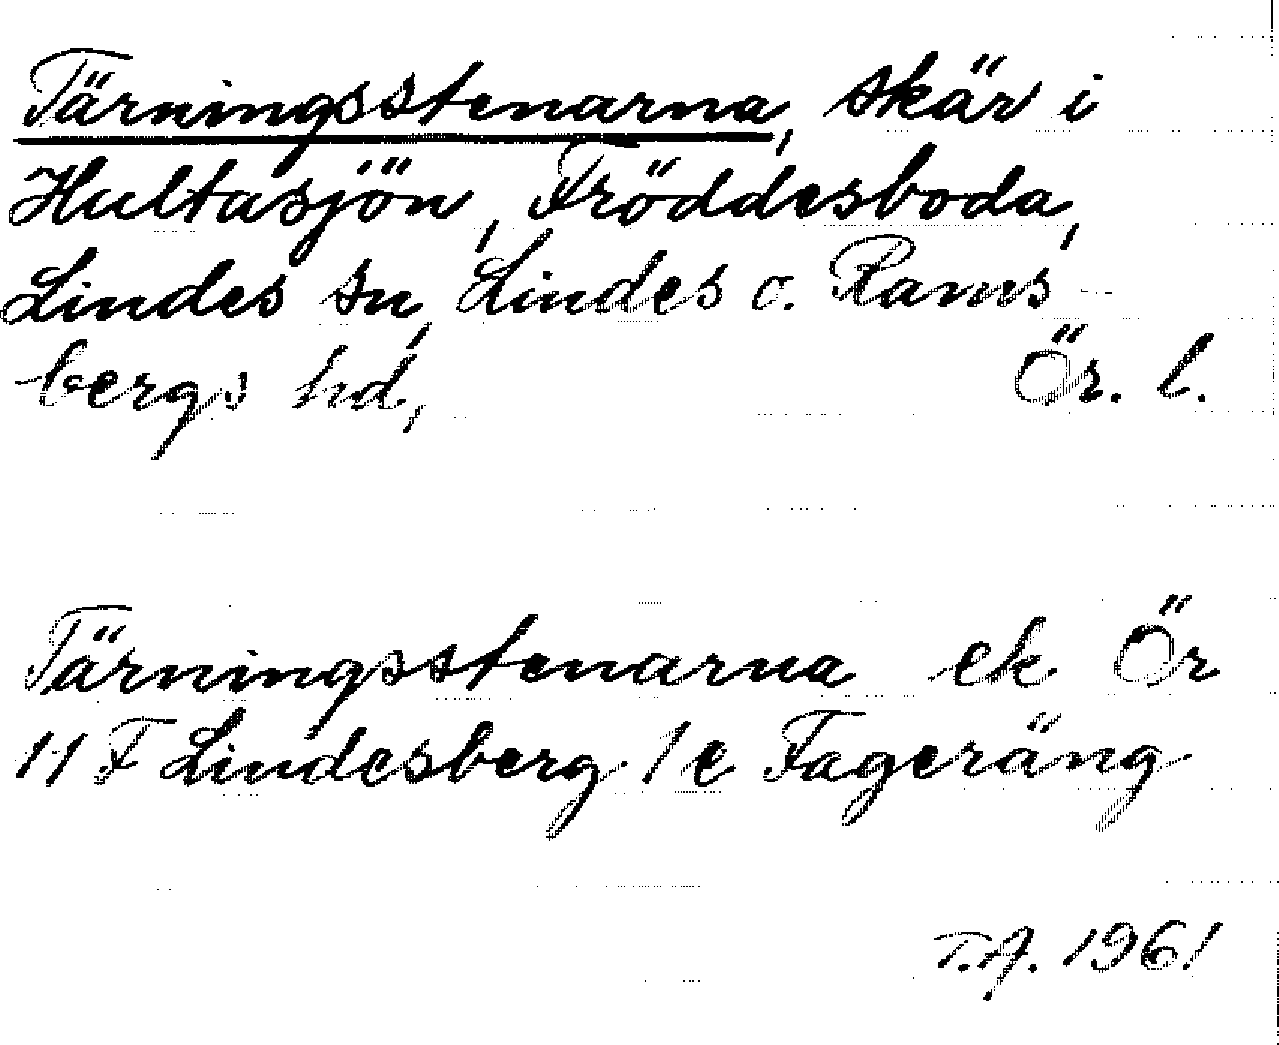 Tärningsstenarna, skär i
Hultasjön, Fröddesboda,
Lindes sn, Lindes o. Rams-
bergs hd, Ör. l.
Tärningsstenarna ek Ör
11 F Lindesberg 1 e Fageräng
T.A. 1961